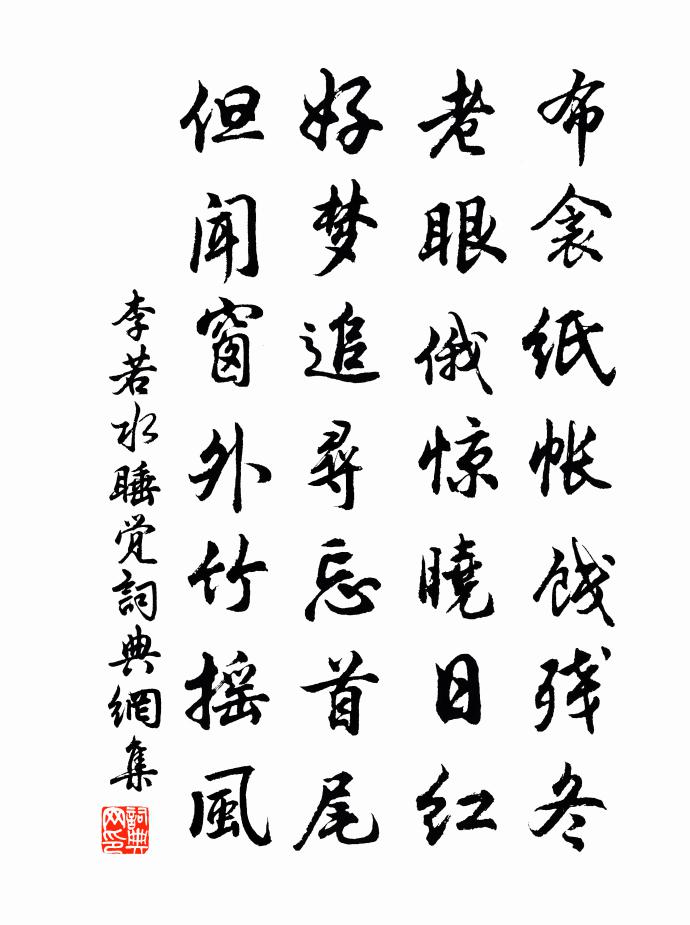 布衾纸帐饯残冬
老眼俄惊晓日红
好梦追寻忘首尾
但闻窗外竹摇風
李若水睡觉詞典網集
詞典网印